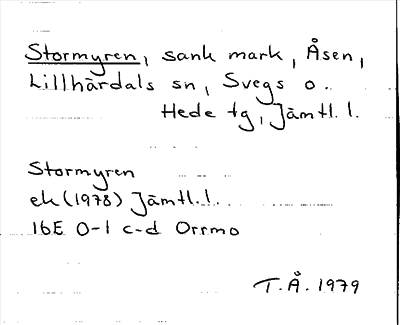 Stormyren, sank mark, Åsen,
Lillhärdals sn, Svegs o.
Hede tg, Jämtl. l.
Stormyren
ek (1978) Jämtl. l.
16E 0-1 c-d Orrmo
T.Å. 1979